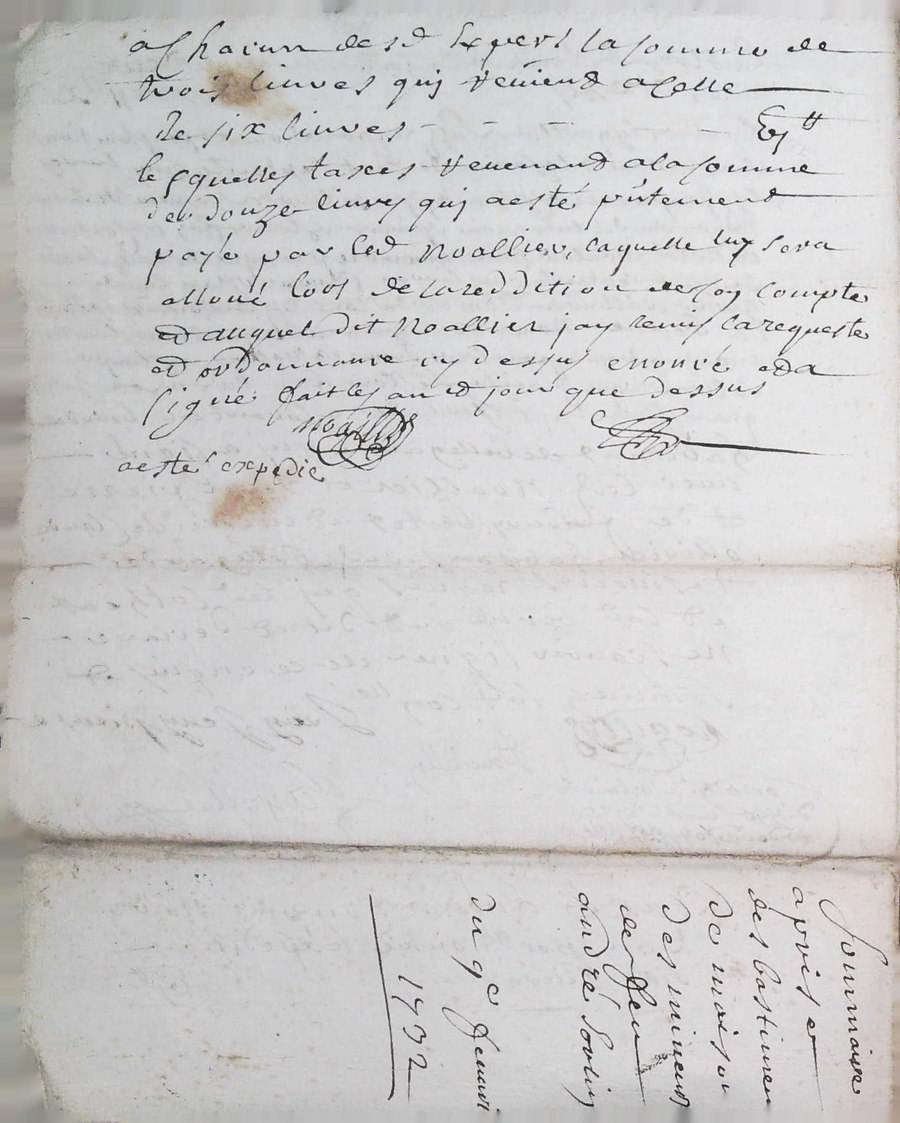 a Chacun desd Expers la somme de
trois liuvres quy revient a Celle
de six liuvres - - - - - vj ᵗᵗ
lesquelles taxes revenand a la somme
de douze liuvres quy a esté p'ntement
payé par led Noallier, laquelle luy sera
alloué lors de la reddition de son compte
et auquel dit Noallier jay remis la requeste
et ordonnance cy dessus enoncé et a
signé. fait les an et jour que dessus
Noaillie
a esté expedie
Sommaire
aprise
des bastimen
de maison
des mineurs
de feu
andré
du 9e Jenvié
1732